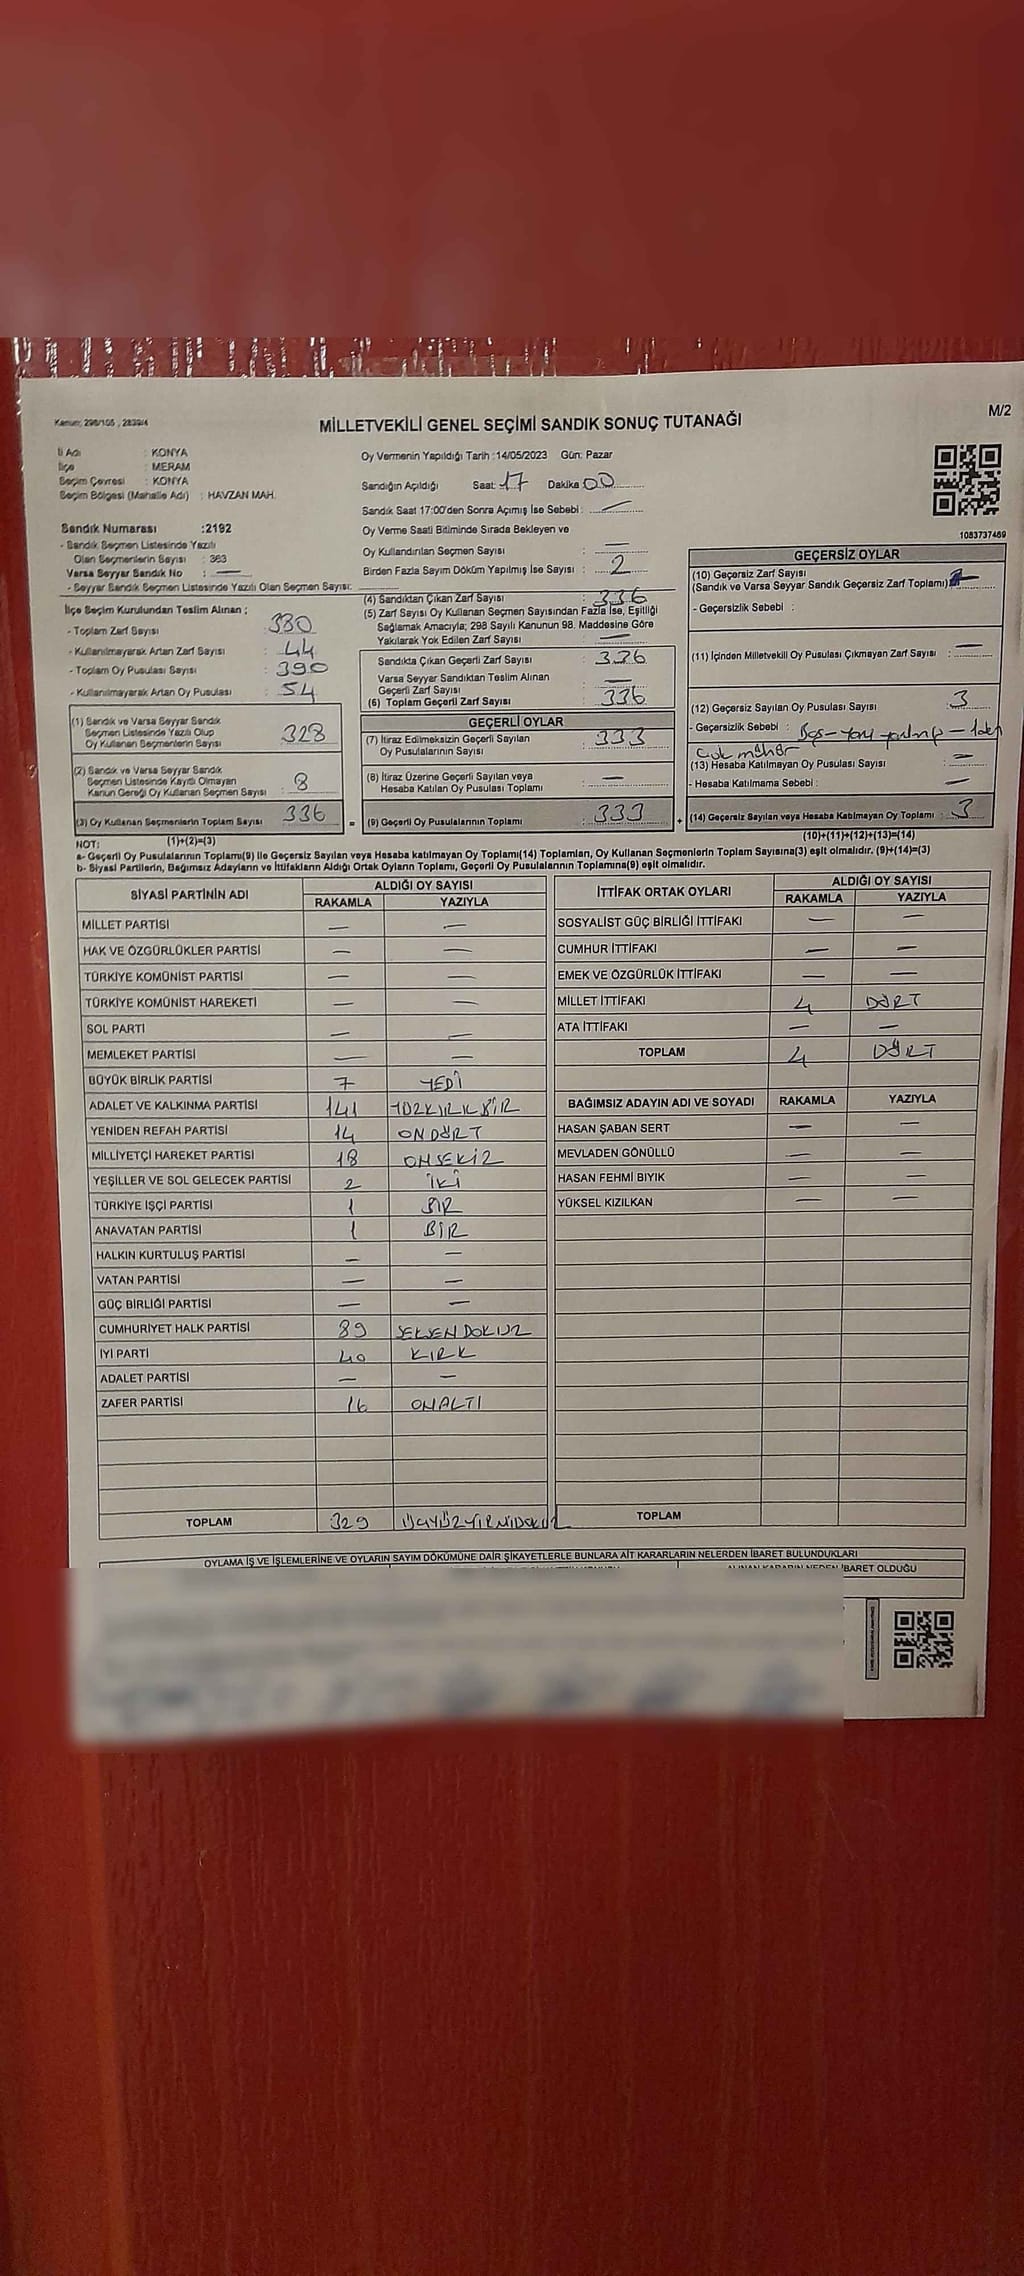 Kanun: 298/105 , 2839/4
MİLLETVEKİLİ GENEL SEÇİMİ SANDIK SONUÇ TUTANAĞI
M/2
İl Adı : KONYA
İlçe : MERAM
Seçim Çevresi : KONYA
Seçim Bölgesi (Mahalle Adı) : HAVZAN MAH.
Sandık Numarası :2192
- Sandık Seçmen Listesinde Yazılı
Olan Seçmenlerin Sayısı : 363
Varsa Seyyar Sandık No : —
- Seyyar Sandık Seçmen Listesinde Yazılı Olan Seçmen Sayısı:
İlçe Seçim Kurulundan Teslim Alınan ;
- Toplam Zarf Sayısı : 380
- Kullanılmayarak Artan Zarf Sayısı : 44
- Toplam Oy Pusulası Sayısı : 390
- Kullanılmayarak Artan Oy Pusulası : 54
(1) Sandık ve Varsa Seyyar Sandık
Seçmen Listesinde Yazılı Olup
Oy Kullanan Seçmenlerin Sayısı : 328
(2) Sandık ve Varsa Seyyar Sandık
Seçmen Listesinde Kayıtlı Olmayan
Kanun Gereği Oy Kullanan Seçmen Sayısı : 8
(3) Oy Kullanan Seçmenlerin Toplam Sayısı : 336
(1)+(2)=(3)
Oy Vermenin Yapıldığı Tarih :14/05/2023 Gün: Pazar
Sandığın Açıldığı Saat: 17 Dakika: 00
Sandık Saat 17:00'den Sonra Açımış İse Sebebi : —
Oy Verme Saati Bitiminde Sırada Bekleyen ve
Oy Kullandırılan Seçmen Sayısı : —
Birden Fazla Sayım Döküm Yapılmış İse Sayısı : 2
(4) Sandıktan Çıkan Zarf Sayısı : 336
(5) Zarf Sayısı Oy Kullanan Seçmen Sayısından Fazla İse, Eşitliği
Sağlamak Amacıyla; 298 Sayılı Kanunun 98. Maddesine Göre
Yakılarak Yok Edilen Zarf Sayısı : —
Sandıkta Çıkan Geçerli Zarf Sayısı : 336
Varsa Seyyar Sandıktan Teslim Alınan
Geçerli Zarf Sayısı : —
(6) Toplam Geçerli Zarf Sayısı : 336
GEÇERLİ OYLAR
(7) İtiraz Edilmeksizin Geçerli Sayılan
Oy Pusulalarının Sayısı : 333
(8) İtiraz Üzerine Geçerli Sayılan veya
Hesaba Katılan Oy Pusulası Toplamı : —
= (9) Geçerli Oy Pusulalarının Toplamı : 333
1083737469
GEÇERSİZ OYLAR
(10) Geçersiz Zarf Sayısı
(Sandık ve Varsa Seyyar Sandık Geçersiz Zarf Toplamı):
- Geçersizlik Sebebi :
(11) İçinden Milletvekili Oy Pusulası Çıkmayan Zarf Sayısı : —
(12) Geçersiz Sayılan Oy Pusulası Sayısı : 3
- Geçersizlik Sebebi : Boş -
Çok mühür
(13) Hesaba Katılmayan Oy Pusulası Sayısı : —
- Hesaba Katılmama Sebebi : —
+ (14) Geçersiz Sayılan veya Hesaba Katılmayan Oy Toplamı : 3
(10)+(11)+(12)+(13)=(14)
NOT:
a- Geçerli Oy Pusulalarının Toplamı(9) ile Geçersiz Sayılan veya Hesaba katılmayan Oy Toplamı(14) Toplamları, Oy Kullanan Seçmenlerin Toplam Sayısına(3) eşit olmalıdır. (9)+(14)=(3)
b- Siyasi Partilerin, Bağımsız Adayların ve İttifakların Aldığı Ortak Oyların Toplamı, Geçerli Oy Pusulalarının Toplamına(9) eşit olmalıdır.
SİYASİ PARTİNİN ADI ALDIĞI OY SAYISI
RAKAMLA YAZIYLA
MİLLET PARTİSİ — —
HAK VE ÖZGÜRLÜKLER PARTİSİ — —
TÜRKİYE KOMÜNİST PARTİSİ — —
TÜRKİYE KOMÜNİST HAREKETİ — —
SOL PARTİ — —
MEMLEKET PARTİSİ — —
BÜYÜK BİRLİK PARTİSİ 7 YEDİ
ADALET VE KALKINMA PARTİSİ 141 YÜZKIRKBİR
YENİDEN REFAH PARTİSİ 14 ONDÖRT
MİLLİYETÇİ HAREKET PARTİSİ 18 ONSEKİZ
YEŞİLLER VE SOL GELECEK PARTİSİ 2 İKİ
TÜRKİYE İŞÇİ PARTİSİ 1 BİR
ANAVATAN PARTİSİ 1 BİR
HALKIN KURTULUŞ PARTİSİ — —
VATAN PARTİSİ — —
GÜÇ BİRLİĞİ PARTİSİ — —
CUMHURİYET HALK PARTİSİ 89 SEKSENDOKUZ
İYİ PARTİ 40 KIRK
ADALET PARTİSİ — —
ZAFER PARTİSİ 16 ONALTI
TOPLAM 329 ÜÇYÜZYİRMİDOKUZ
İTTİFAK ORTAK OYLARI ALDIĞI OY SAYISI
RAKAMLA YAZIYLA
SOSYALİST GÜÇ BİRLİĞİ İTTİFAKI — —
CUMHUR İTTİFAKI — —
EMEK VE ÖZGÜRLÜK İTTİFAKI — —
MİLLET İTTİFAKI 4 DÖRT
ATA İTTİFAKI — —
TOPLAM 4 DÖRT
BAĞIMSIZ ADAYIN ADI VE SOYADI RAKAMLA YAZIYLA
HASAN ŞABAN SERT — —
MEVLADEN GÖNÜLLÜ — —
HASAN FEHMİ BIYIK — —
YÜKSEL KIZILKAN — —
TOPLAM
OYLAMA İŞ VE İŞLEMLERİNE VE OYLARIN SAYIM DÖKÜMÜNE DAİR ŞİKAYETLERLE BUNLARA AİT KARARLARIN NELERDEN İBARET BULUNDUKLARI
ALINAN KARARIN NEDEN İBARET OLDUĞU